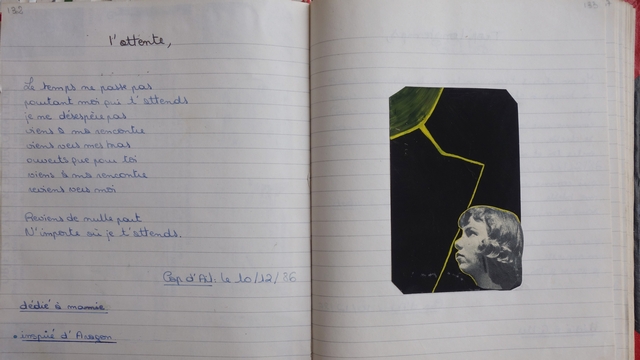 182
183
l'attente,
Le temps ne passe pas
pourtant moi qui t'attends
je ne désespère pas
viens à ma rencontre
viens vers mes bras
ouverts que pour toi
viens à ma rencontre
reviens vers moi
Reviens de nulle part
N'importe où je t'attends.
Cap d'Ail: le 10/12/86
dédié à mamie
• inspiré d'Aragon